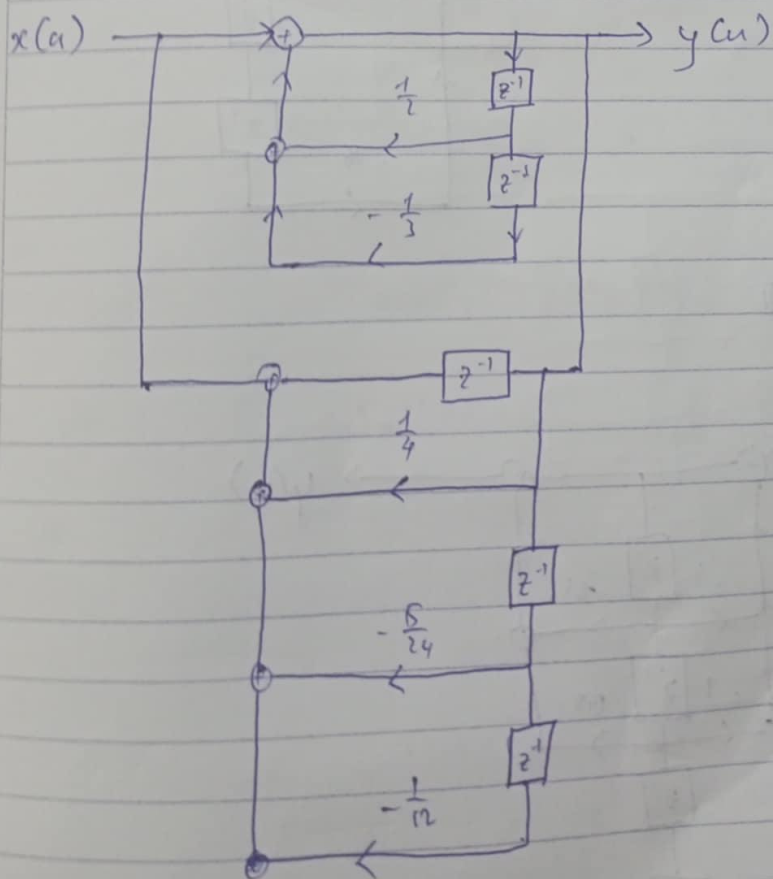 x(a) + y(n)
z⁻¹
1/2
z⁻¹
- 1/3
z⁻¹
1/4
z⁻¹
- 5/24
z⁻¹
- 1/12